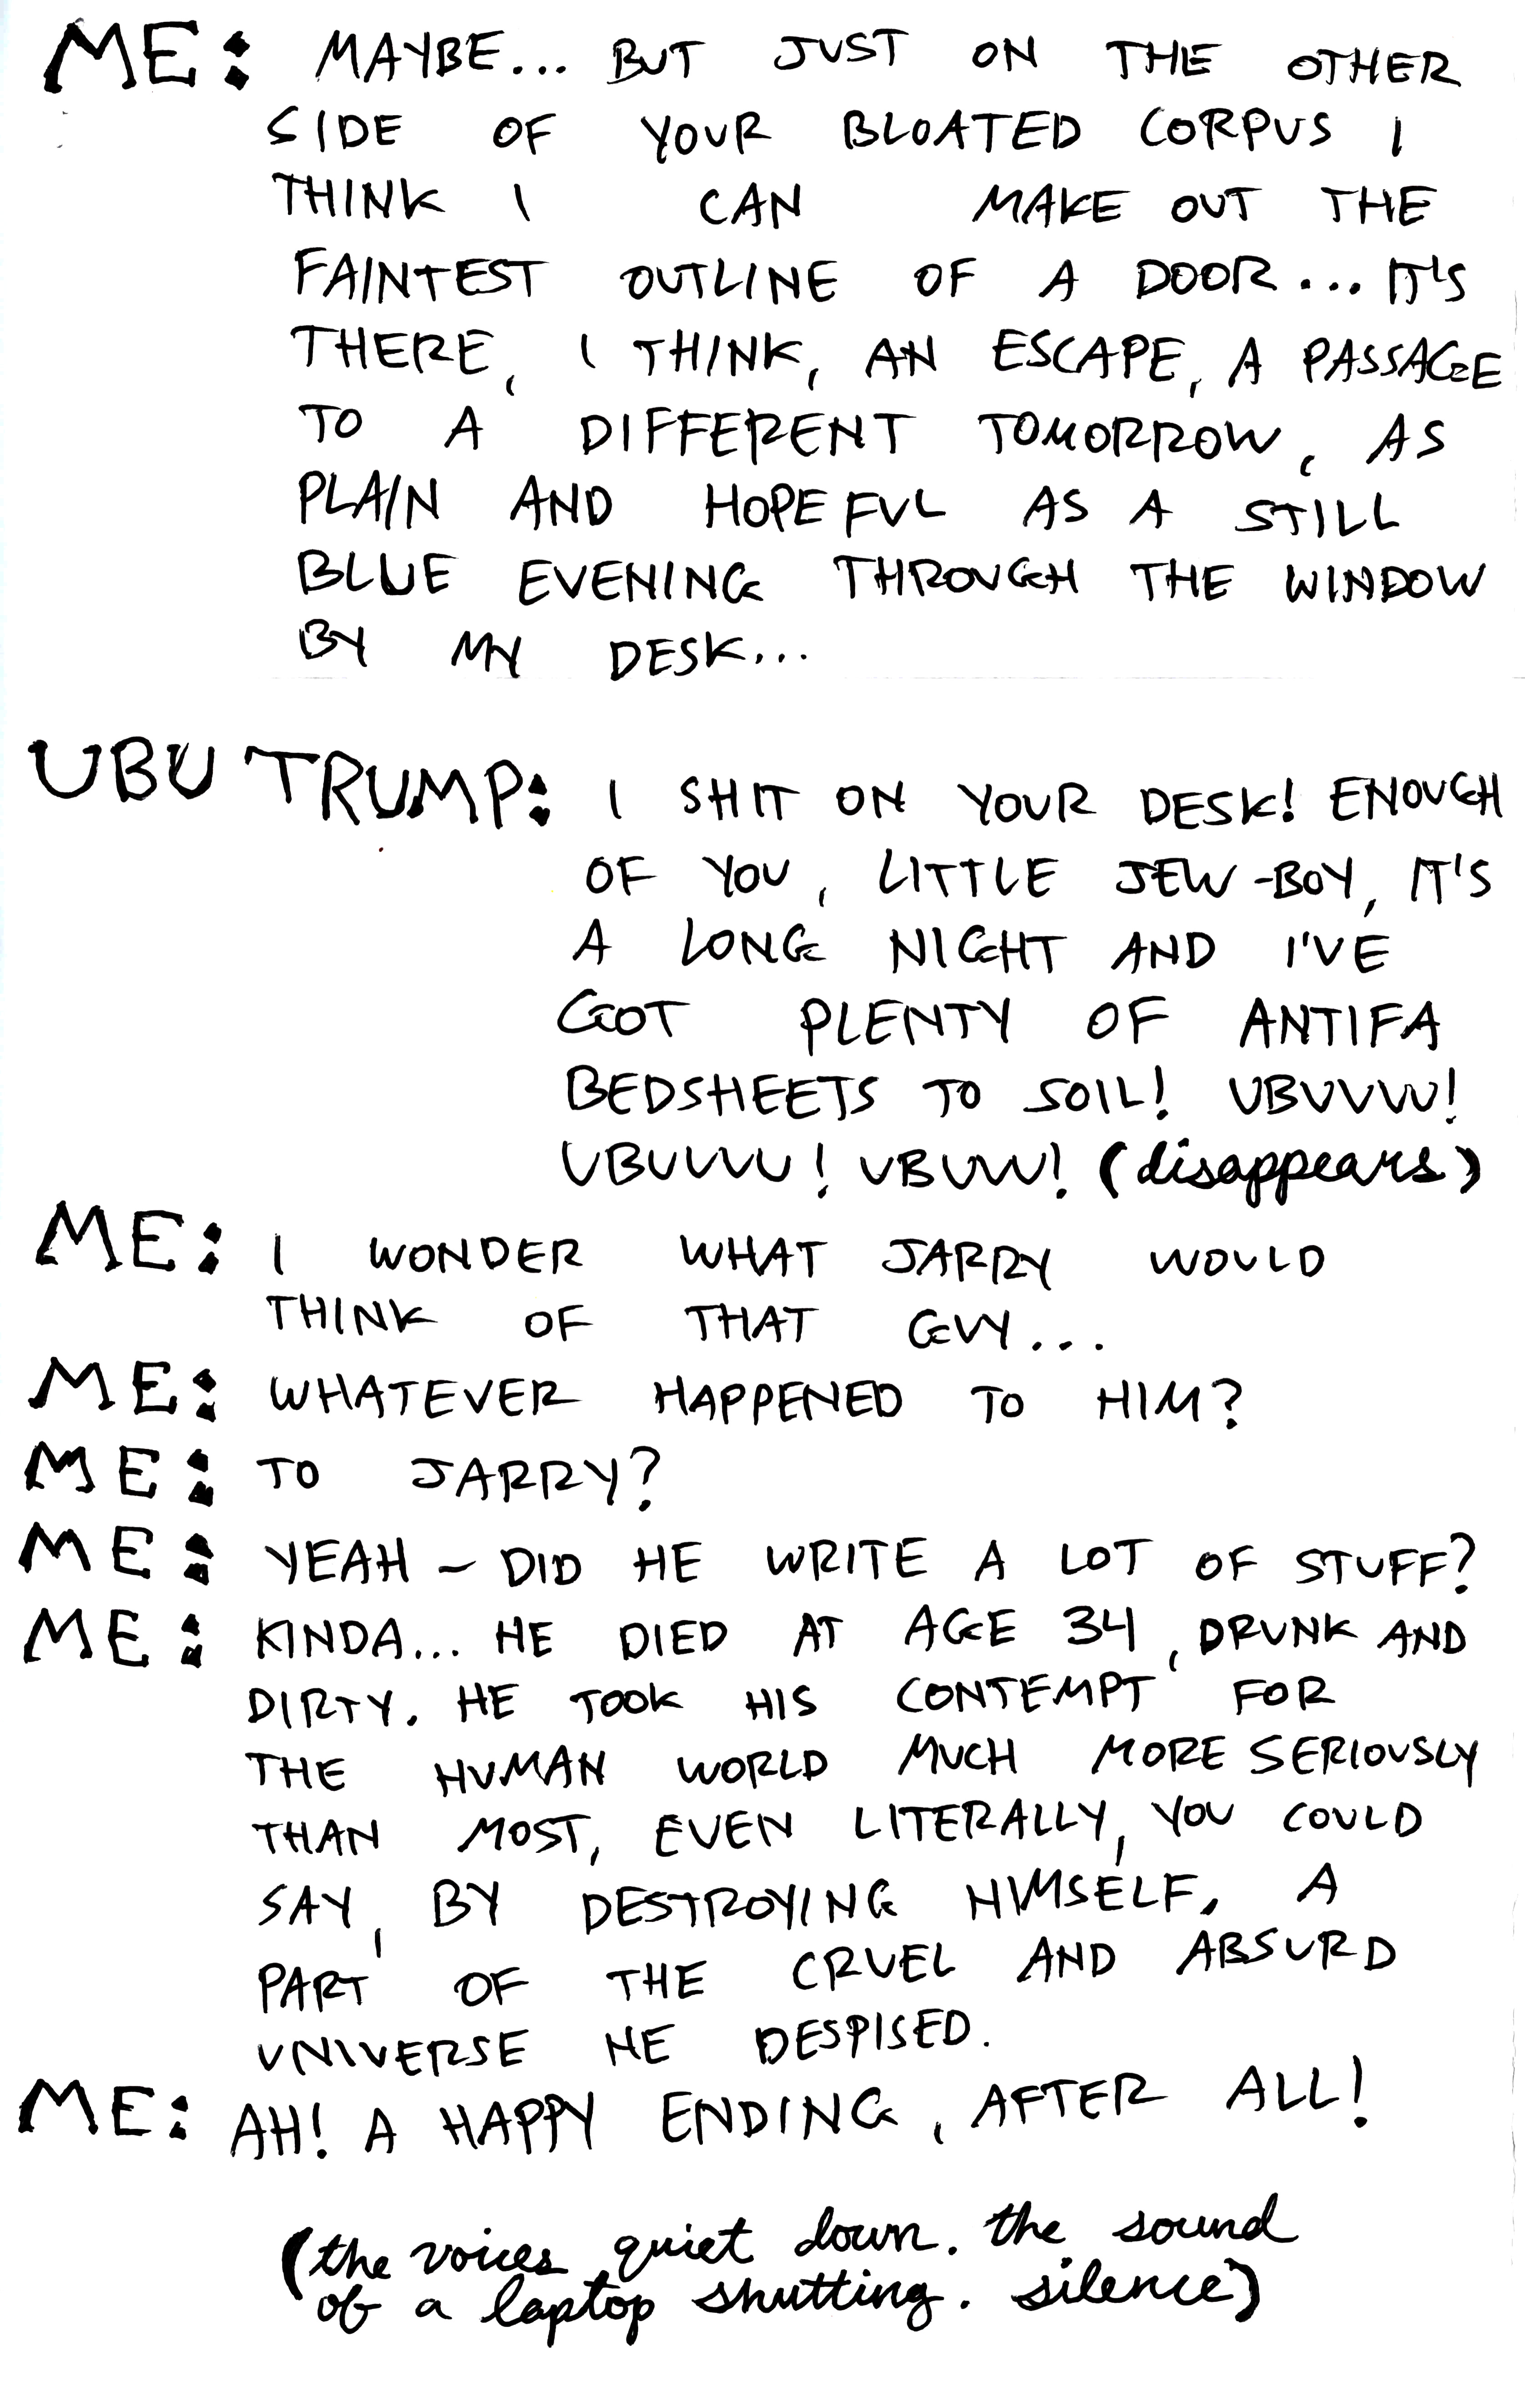 ME: MAYBE... BUT JUST ON THE OTHER
SIDE OF YOUR BLOATED CORPUS I
THINK I CAN MAKE OUT THE
FAINTEST OUTLINE OF A DOOR... IT'S
THERE, I THINK, AN ESCAPE, A PASSAGE
TO A DIFFERENT TOMORROW, AS
PLAIN AND HOPEFUL AS A STILL
BLUE EVENING THROUGH THE WINDOW
BY MY DESK...
UBU TRUMP: I SHIT ON YOUR DESK! ENOUGH
OF YOU, LITTLE JEW-BOY, IT'S
A LONG NIGHT AND I'VE
GOT PLENTY OF ANTIFA
BEDSHEETS TO SOIL! UBUUUU!
UBUUUU! UBUUU! (disappears)
ME: I WONDER WHAT JARRY WOULD
THINK OF THAT GUY...
ME: WHATEVER HAPPENED TO HIM?
ME: TO JARRY?
ME: YEAH - DID HE WRITE A LOT OF STUFF?
ME: KINDA... HE DIED AT AGE 34, DRUNK AND
DIRTY. HE TOOK HIS CONTEMPT FOR
THE HUMAN WORLD MUCH MORE SERIOUSLY
THAN MOST, EVEN LITERALLY, YOU COULD
SAY, BY DESTROYING HIMSELF, A
PART OF THE CRUEL AND ABSURD
UNIVERSE HE DESPISED.
ME: AH! A HAPPY ENDING, AFTER ALL!
(the voices quiet down. the sound
of a laptop shutting. silence)